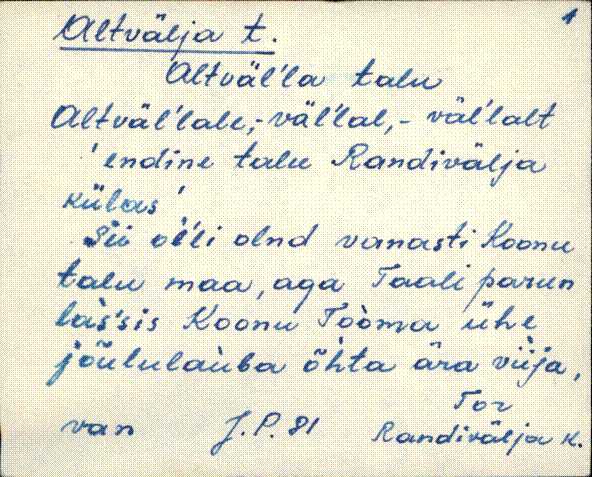 1
Altvälja t.
Altväl'la talu
Altväl'lale,-väl'lal,- väl'lalt
'endine talu Randivälja
külas'
Sii òl'li olnd vanasti Koonu
talu maa, aga Taali parun
làs'sis Koonu Tòòma ühe
jõululàuba õhta ära viija,
Tor
van J.P. 81 Randivälja k.